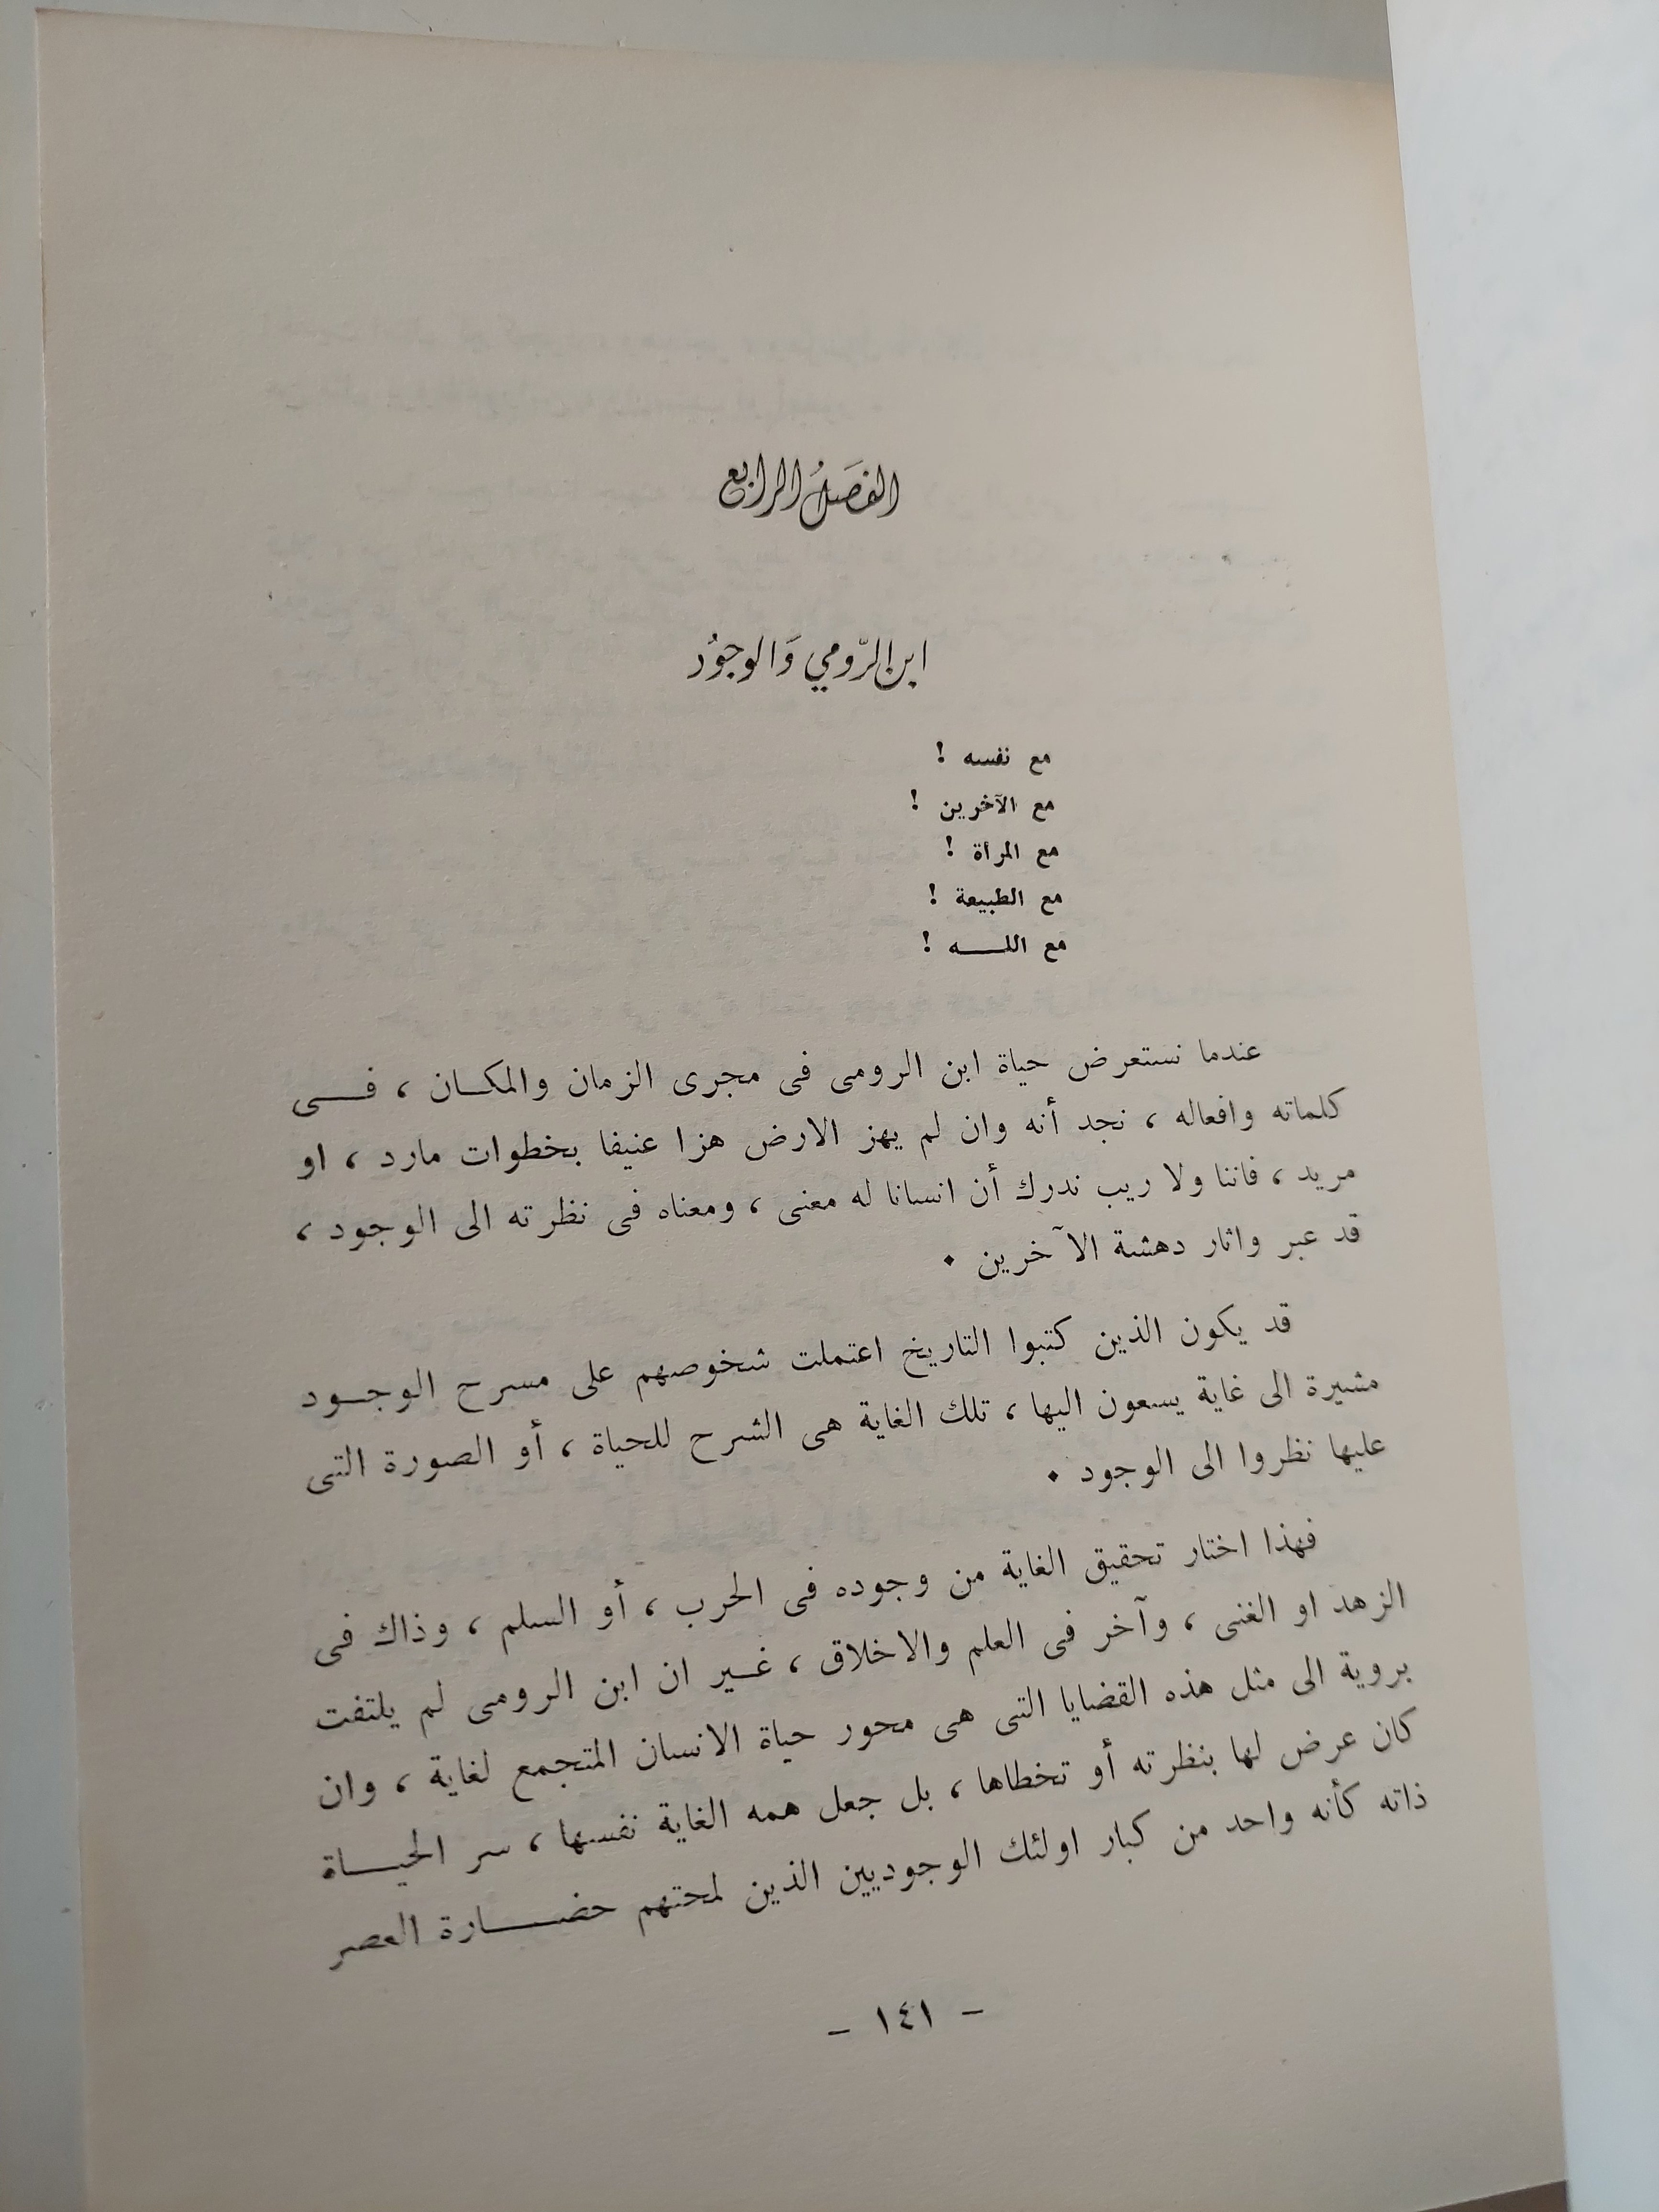 الفَصَلُ الرابع
ابن الرّومي وَالوجوُد
مع نفسه !
مع الآخرين !
مع المرأة !
مع الطبيعة !
مع اللـــه !
عندما نستعرض حياة ابن الرومى فى مجرى الزمان والمكــان ، فــــى
كلماته وافعاله ، نجد أنه وان لم يهز الارض هزا عنيفا بخطوات مارد ، او
مريد ، فاننا ولا ريب ندرك أن انسانا له معنى ، ومعناه فى نظرته الى الوجود ،
قد عبر واثار دهشة الآخرين ٠
قد يكون الذين كتبوا التاريخ اعتملت شخوصهم على مسرح الوجــود
مشيرة الى غاية يسعون اليها ، تلك الغاية هى الشرح للحياة ، أو الصورة التى
عليها نظروا الى الوجود ٠
فهذا اختار تحقيق الغاية من وجوده فى الحرب ، أو السلم ، وذاك فى
الزهد او الغنى ، وآخر فى العلم والاخلاق ، غــير ان ابن الرومى لم يلتفت
بروية الى مثل هذه القضايا التى هى محور حياة الانسان المتجمع لغاية ، وان
كان عرض لها بنظرته أو تخطاها ، بل جعل همه الغاية نفسها ، سر الحيــــاة
ذاته كأنه واحد من كبار اولئك الوجوديين الذين لمحتهم حضــــــارة العصر
– ١٤١ –